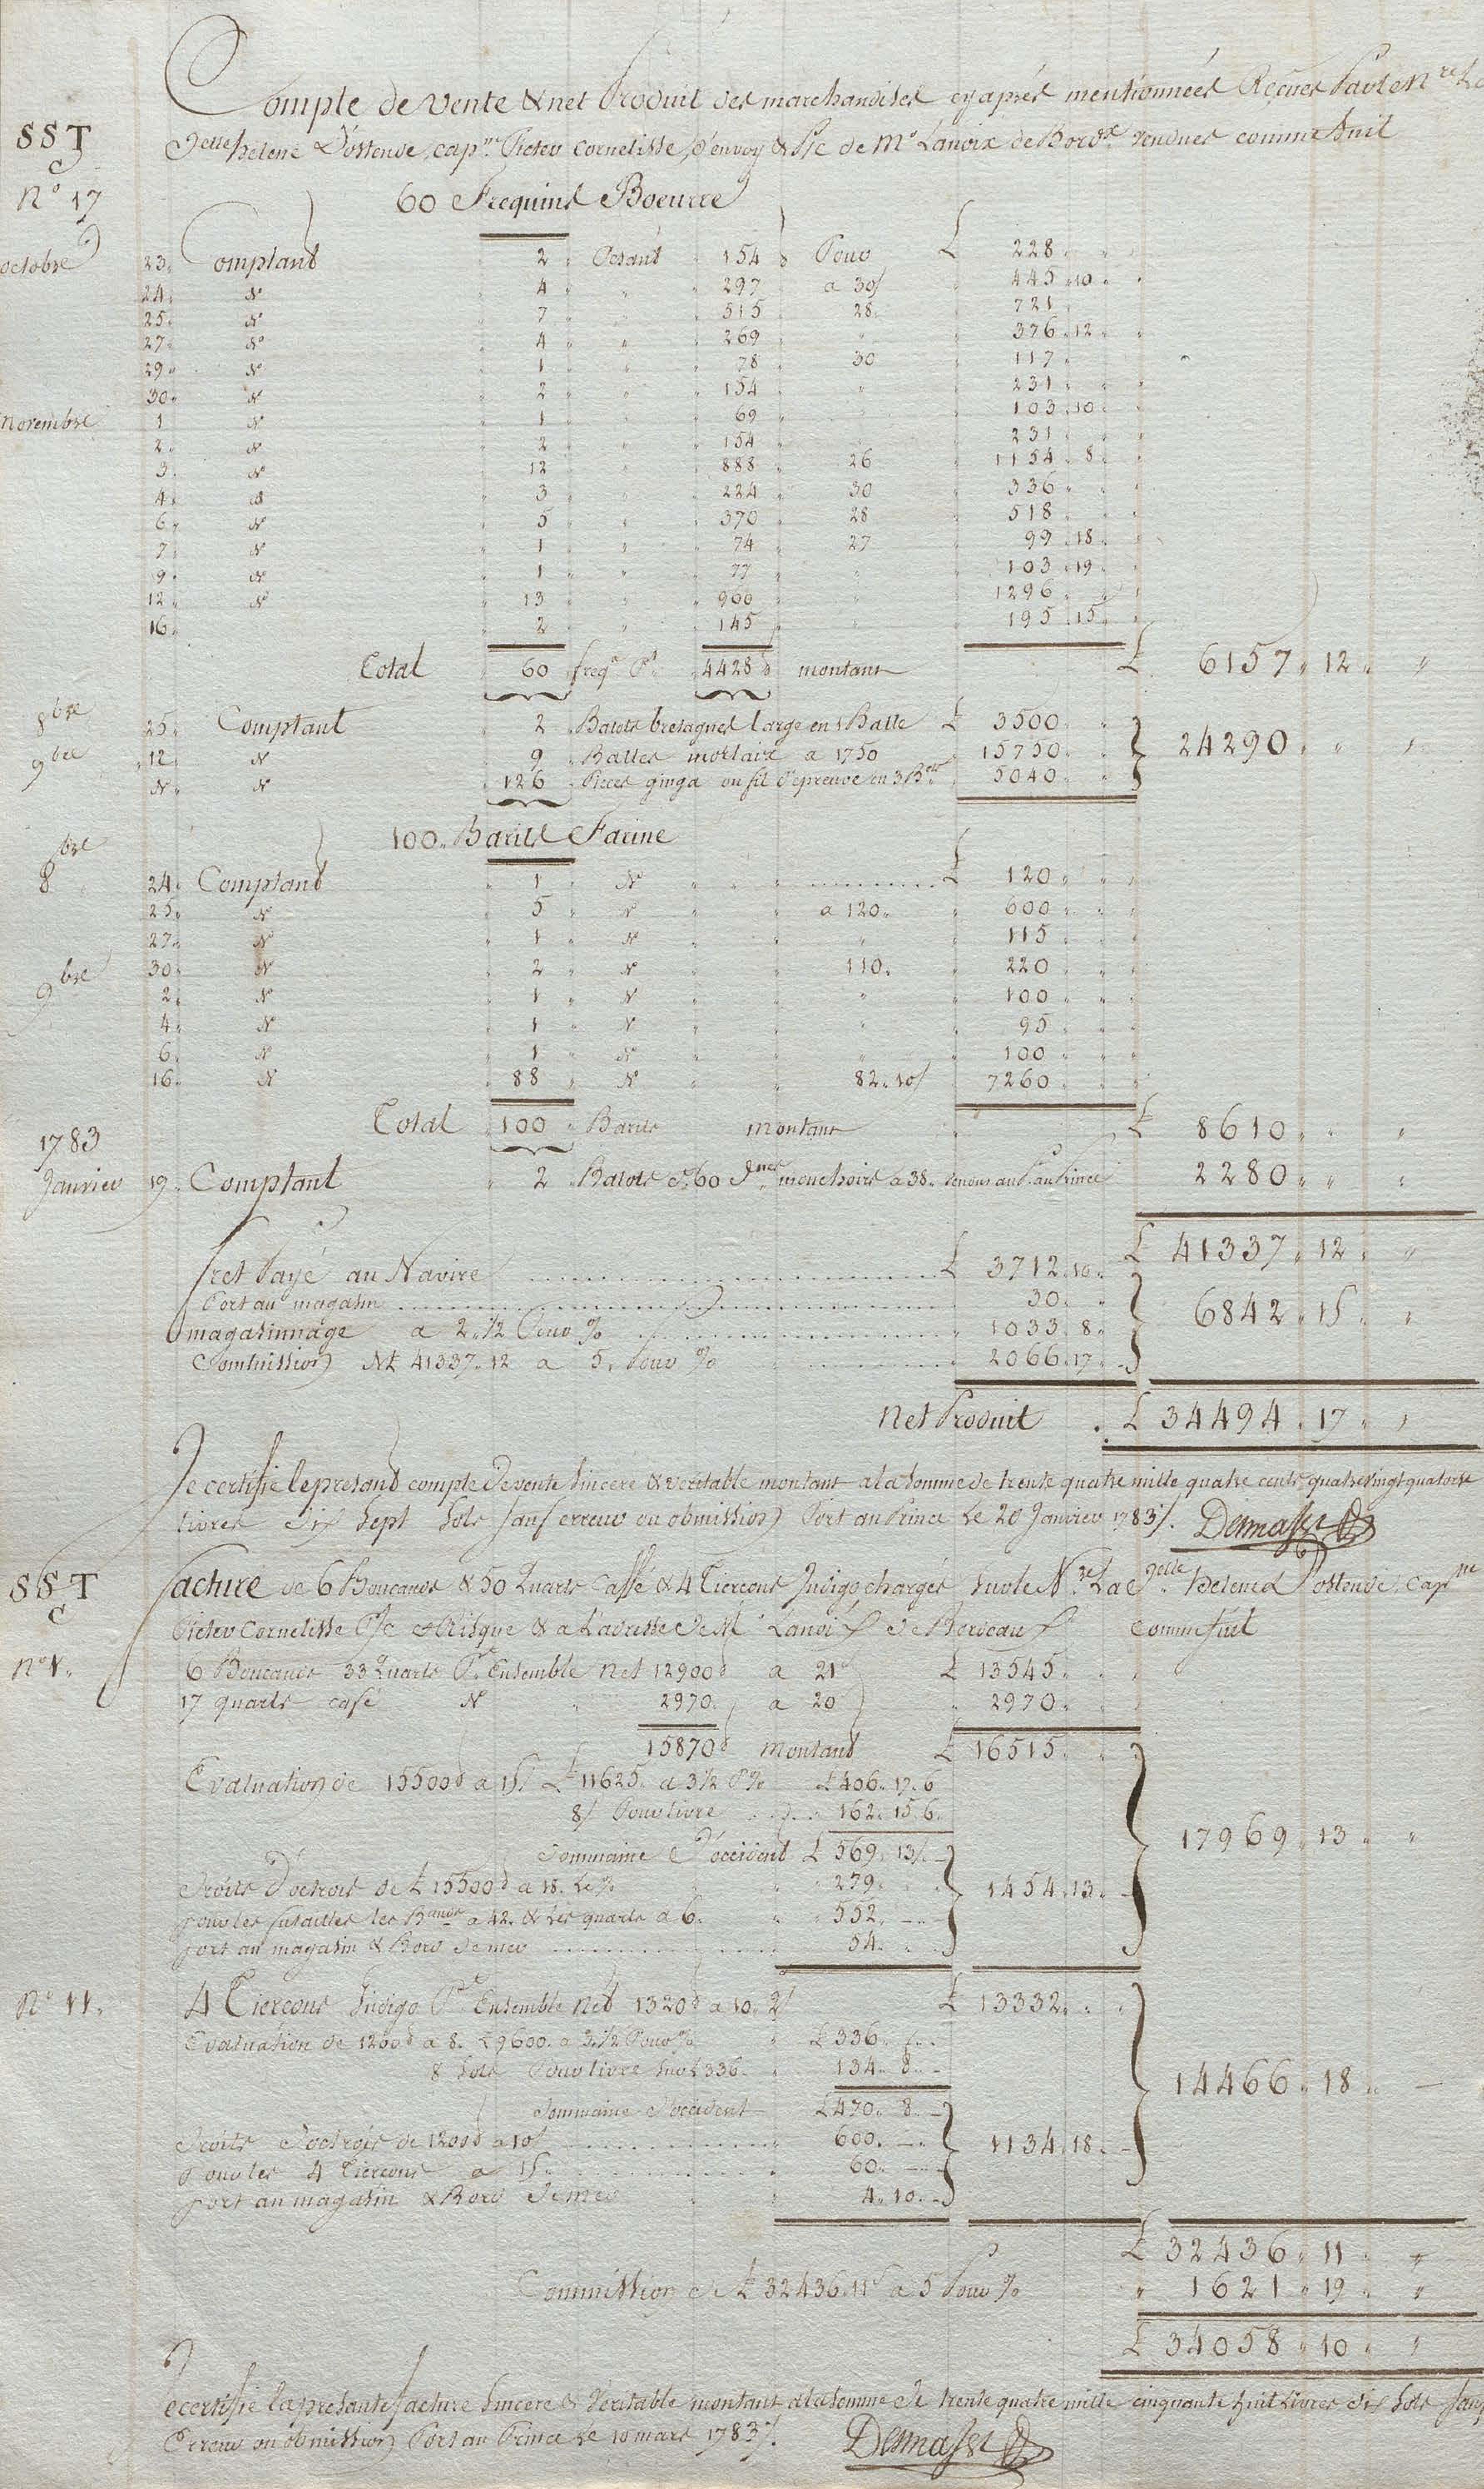 Compte de vente & net Produit des marchandises cy après mentionnées Reçues Par le N.re La
SST
C
D.elle helene D'ostende, cap.ne Pieter Cornelisse, d'envoy & P/c de Mr Lanoix de Bord.x vendues comme suit
N° 17
60 Frequins Boeurre
octobre 23 Comptant 2 Pesant 154 Pour £ 228
24 N° 4 297 a 30s 445 10
25 N° 7 515 28 721
27 N° 4 269 376 12
29 N° 1 78 30 117
30 N° 2 154 231
Novembre 1 N° 1 69 103 10
2 N° 2 154 231
3 N° 12 888 26 1154 8
4 N° 3 224 30 336
6 N° 5 370 28 518
7 N° 1 74 27 99 18
9 N° 1 77 103 19
12 N° 13 960 1296
16 2 145 195 15
Total 60 freq.s P.t 4428 montant £ 6157 12
8bre 25 Comptant 2 Balots bretagnes large en 1 Balle £ 3500
9bre 12 N° 9 Balles morlaix a 1750 15750 24290
N° N° 126 Pieces ginga ou fil d'epreuve en 3 B.les 5040
100 Barils Farine
8bre 24 Comptant 1 N° £ 120
25 N° 5 N° a 120 600
27 N° 1 N° 115
30 N° 2 N° 110 220
9bre 2 N° 1 N° 100
4 N° 1 N° 95
6 N° 1 N° 100
16 N° 88 N° 82 10s 7260
Total 100 Barils montant £ 8610
1783
Janvier 19 Comptant 2 Balots de 60 D.nes mouchoirs a 38 vendus au P. au Prince 2280
£ 41337 12
fret Payé au Navire £ 3712 10
Port au magasin 30
6842 15
magasinnage a 2 1/2 Pour % 1033 8
Commission N£ 41337 12 a 5 Pour % 2066 17
Net Produit £ 34494 17
Je certifie le presant compte de vente sincere & veritable montant a la somme de trente quatre mille quatre cents quatre vingt quatorse
livres dix sept sols sauf erreur ou obmission) Port au Prince Le 20 Janvier 1783
SST
C
facture de 6 Boucauds & 50 Quarts Caffé & 4 Tiercons Indigo chargés sur le N.re La D.elle Helene d'ostende, cap.ne
Pieter Cornelisse P/c & Risque & a L'adresse de M.r Lanoix de Bordeaux comme suit
N° 1 6 Boucauds 33 Quarts P.t Ensemble Net 12900 a 21s £ 13545
17 quarts café N° 2970 a 20 2970
15870 montant £ 16515
Evaluation de 15500 a 15s £ 11625 a 3 1/2 P% £ 406 17 6
8s Pour livre 162 15 6
17969 13
Dommaine d'occident £ 569 13
Droits D'octrois de £ 15500 a 18 Le % 279 1454 13
pour les futailles les B.auds a 42 & les quarts a 6 552
port au magasin & Bord de mer 54
N° 11 4 Tiercons Indigo P.t Ensemble Net 1320 a 10 2s £ 13332
Evaluation de 1200 a 8 £ 9600 a 3 1/2 Pour % £ 336
8 Sols Pour livre sur £ 336 134 8
14466 18
Dommaine d'occident £ 470 8
Droits d'octrois de 1200 a 10s 600 1134 18
pour les 4 Tiercons a 15 60
port au magasin & Bord de mer 4 10
£ 32436 11
Commission de £ 32436 11s a 5 Pour % 1621 19
£ 34058 10
Je certifie la presante facture sincere & veritable montant a la somme de trente quatre mille cinquante huit livres dix sols sauf
Erreur ou obmission) Port au Prince Le 10 mars 1783